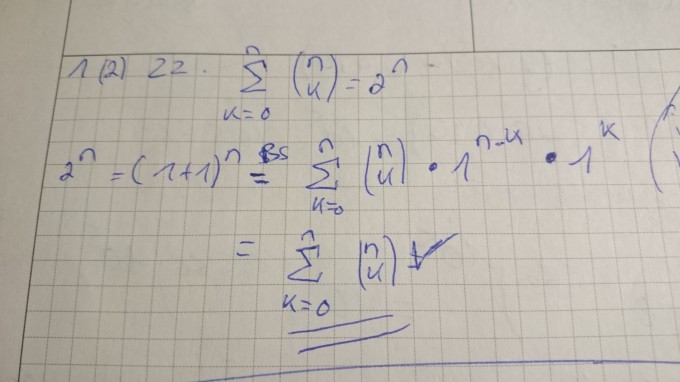 1 (2) ZZ. \sum_{k=0}^{n} \binom{n}{k} = 2^n
2^n = (1+1)^n \overset{BS}{=} \sum_{k=0}^{n} \binom{n}{k} \cdot 1^{n-k} \cdot 1^k
= \sum_{k=0}^{n} \binom{n}{k} ✓